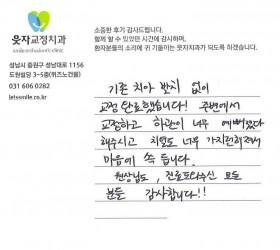 웃자교정치과
smile orthodontic clinic
성남시 중원구 성남대로 1156
도원빌딩 3~5층(위즈노건물)
031 606 0282
letssmile.co.kr
소중한 후기 감사드립니다.
함께 할 수 있었던 시간에 감사하며,
환자분들의 소리에 귀 기울이는 웃자치과가 되도록 하겠습니다.
기존 치아 발치 없이
교정 완료했습니다! 주변에서
교정하고 하관이 너무 예뻐졌다
해주시고 치열도 너무 가지런해져서
마음에 쏙 듭니다.
원장님도, 진료도와주신 모든
분들 감사합니다!!